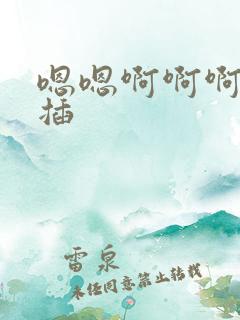 嗯嗯啊啊啊
插
雷泉
未经同意禁止转载